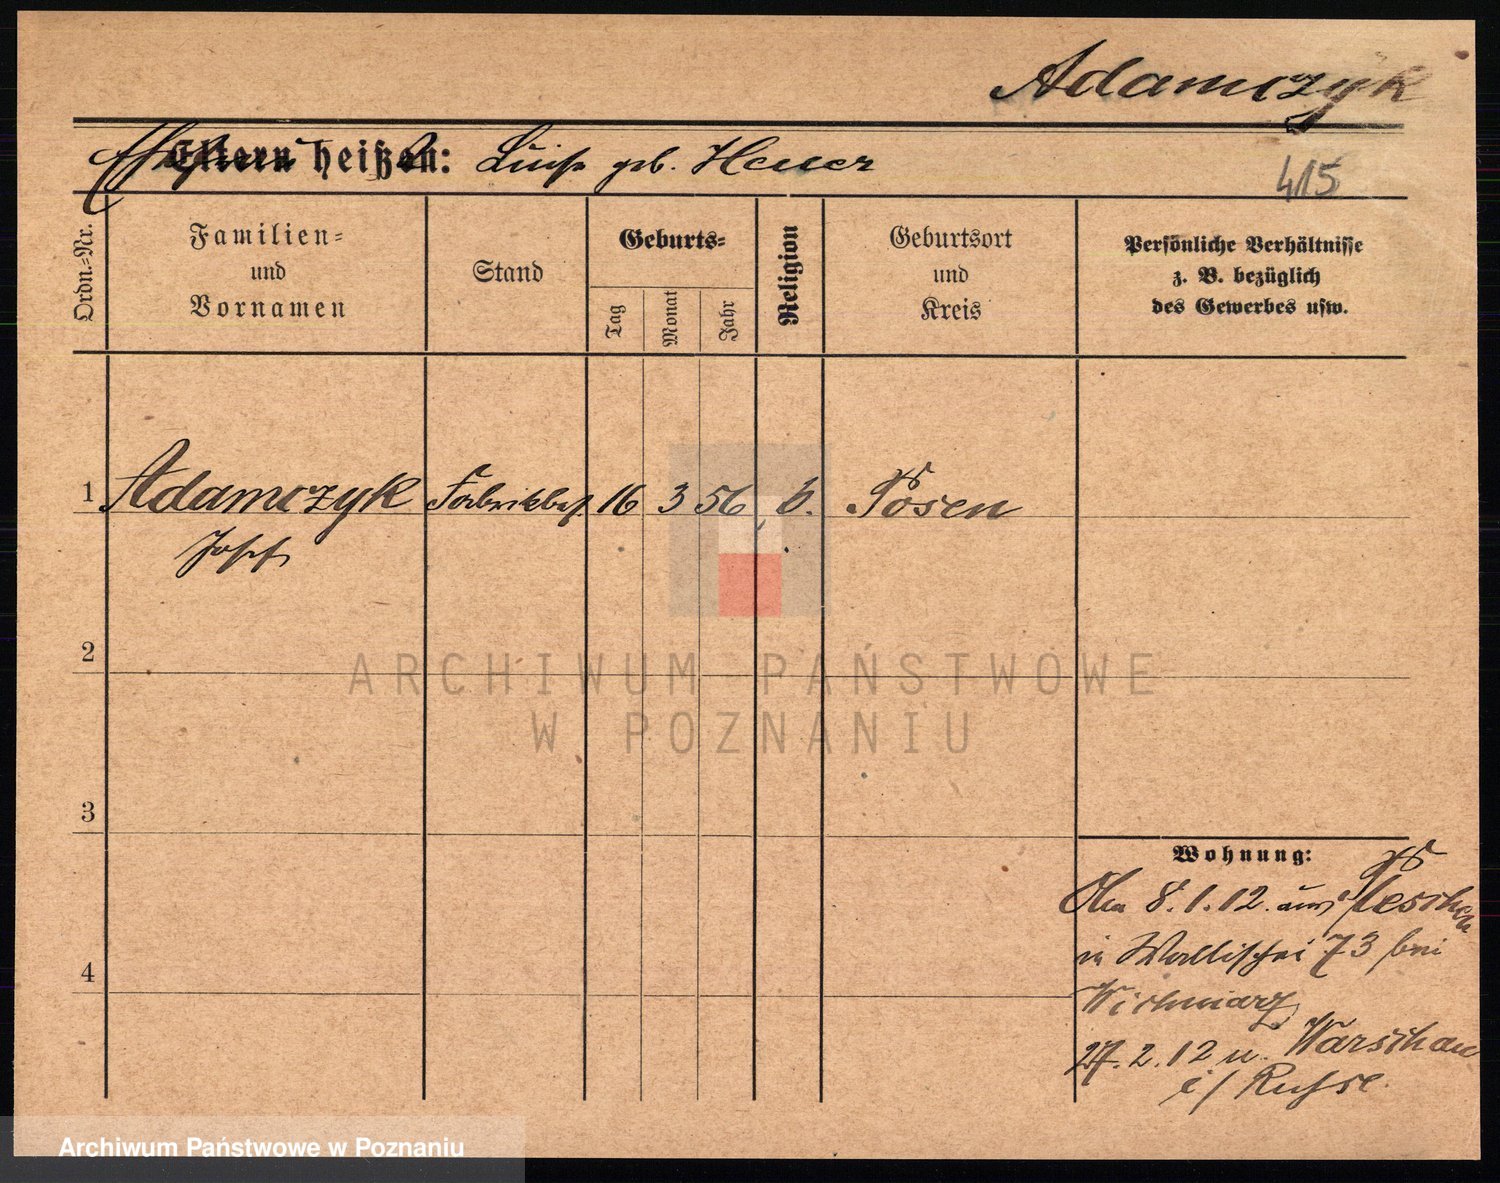 Adamczyk
Ehefrau
Eltern heißen: Luise geb. Heuer
415
Ordn.-Nr.
Familien-
und
Vornamen
Stand
Geburts-
Tag
Monat
Jahr
Religion
Geburtsort
und
Kreis
Persönliche Verhältnisse
z. B. bezüglich
des Gewerbes usw.
1 Adamczyk Fabrikbes. 16 3 56 Posen
Josef
2
3
4
ARCHIWUM PAŃSTWOWE
W POZNANIU
Wohnung:
8.1.12. aus Pleschen
in Wallischei 73 bei
27.2.12 n. Warschau
i/ Russl.
Archiwum Państwowe w Poznaniu